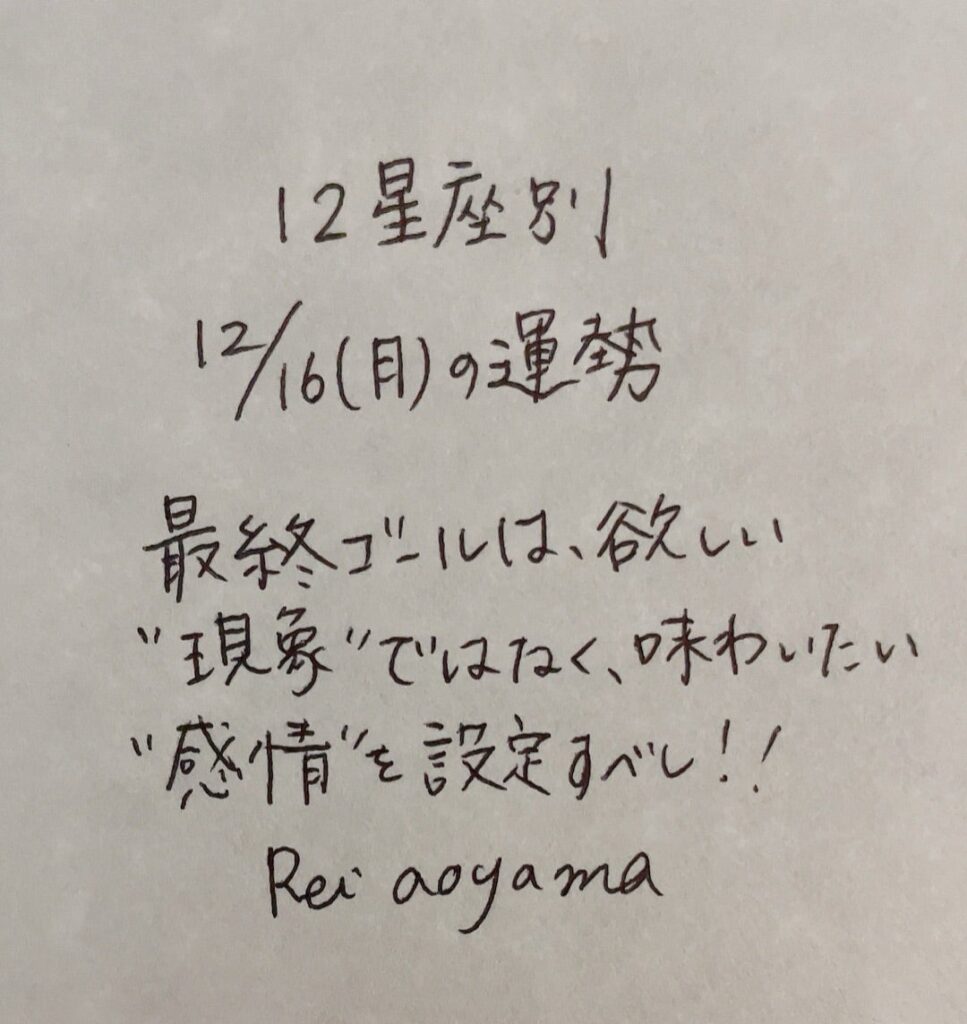 12星座別
12/16(月)の運勢
最終ゴールは、欲しい
"現象"ではなく、味わいたい
"感情"を設定すべし!!
Rei aoyama